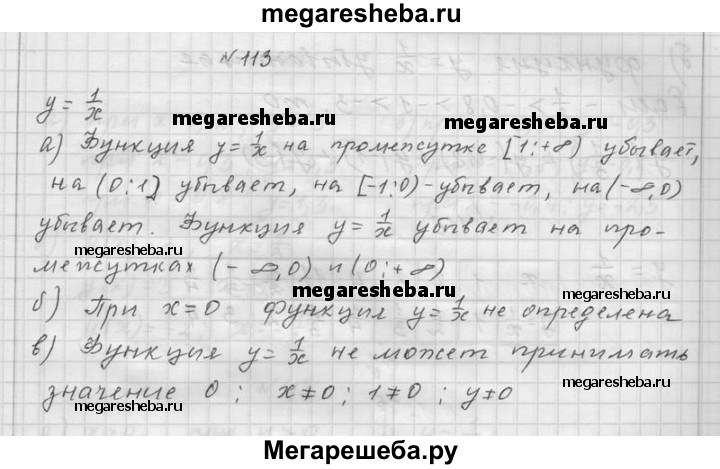 megaresheba.ru
N 113
y = 1/x
megaresheba.ru
megaresheba.ru
а) Функция y = 1/x на промежутке [1; +∞) убывает,
на (0; 1] убывает, на [-1; 0) - убывает, на (-∞, 0)
убывает. Функция y = 1/x убывает на про-
megaresheba.ru
межутках (-∞, 0) и (0; +∞)
megaresheba.ru
б) При x = 0 функция y = 1/x не определена
megaresheba.ru
в) Функция y = 1/x не может принимать
значение 0; x ≠ 0; 1 ≠ 0; y ≠ 0
megaresheba.ru
megaresheba.ru
Мегарешеба.ру